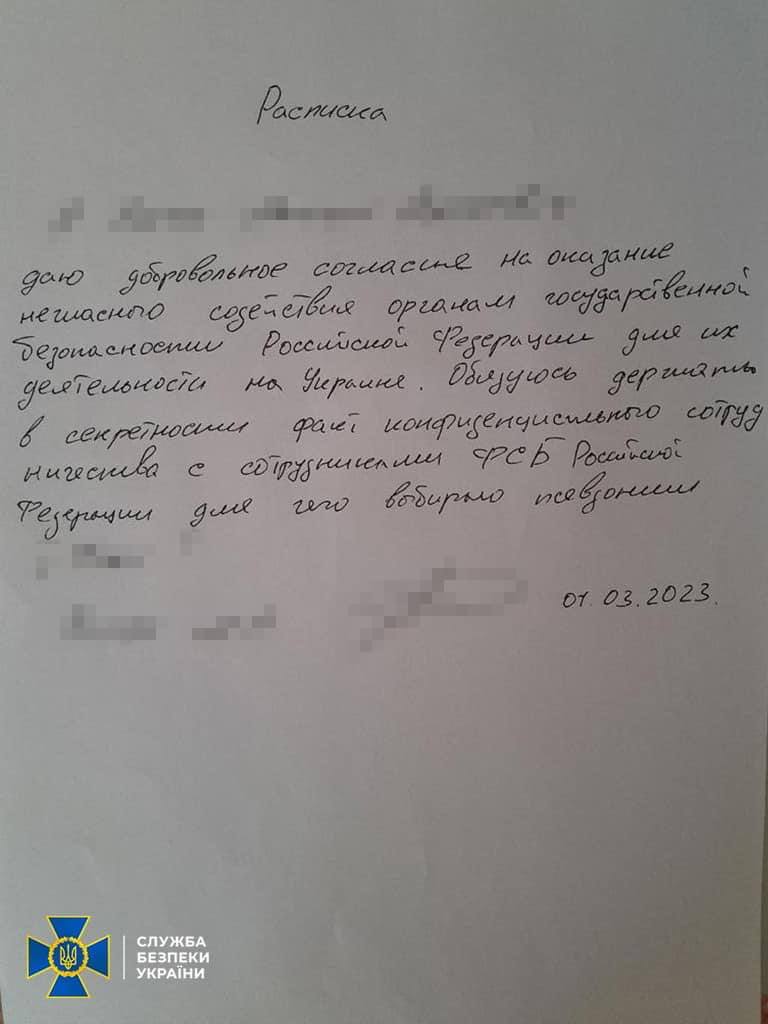 Расписка
даю добровольное согласие на оказание
негласного содействия органам государственной
безопасности Российской Федерации для их
деятельности на Украине. Обязуюсь держать
в секретности факт конфиденциального сотруд
ничества с сотрудниками ФСБ Российской
Федерации для чего выбираю псевдоним
01.03.2023.
СЛУЖБА
БЕЗПЕКИ
УКРАЇНИ